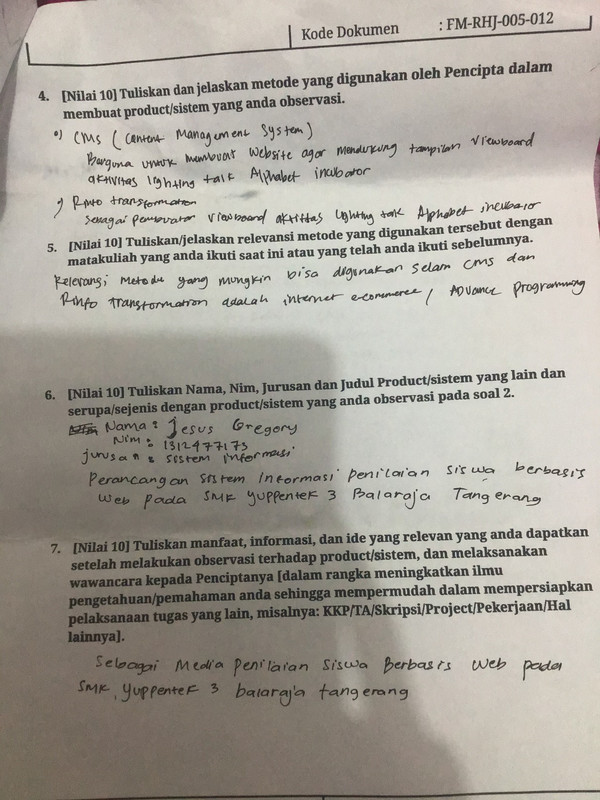 Kode Dokumen : FM-RHJ-005-012
4. [Nilai 10] Tuliskan dan jelaskan metode yang digunakan oleh Pencipta dalam
membuat product/sistem yang anda observasi.
•) CMS (Content Management System)
Berguna untuk membuat Website agar mendukung tampilan Viewboard
aktivitas lighting talk Alphabet incubator
•) Rinfo transformation
Sebagai pembuatan Viewboard aktifitas lighting talk Alphabet incubator
5. [Nilai 10] Tuliskan/jelaskan relevansi metode yang digunakan tersebut dengan
matakuliah yang anda ikuti saat ini atau yang telah anda ikuti sebelumnya.
Relevansi Metode yang mungkin bisa digunakan selain CMS dan
Rinfo transformation adalah internet e-commerce, Advance programming
6. [Nilai 10] Tuliskan Nama, Nim, Jurusan dan Judul Product/sistem yang lain dan
serupa/sejenis dengan product/sistem yang anda observasi pada soal 2.
Nama : Jesus Gregory
Nim : 1312477173
jurusan : sistem informasi
Perancangan Sistem Informasi penilaian siswa berbasis
Web pada SMK Yuppentek 3 Balaraja Tangerang
7. [Nilai 10] Tuliskan manfaat, informasi, dan ide yang relevan yang anda dapatkan
setelah melakukan observasi terhadap product/sistem, dan melaksanakan
wawancara kepada Penciptanya [dalam rangka meningkatkan ilmu
pengetahuan/pemahaman anda sehingga mempermudah dalam mempersiapkan
pelaksanaan tugas yang lain, misalnya: KKP/TA/Skripsi/Project/Pekerjaan/Hal
lainnya].
Sebagai Media penilaian siswa Berbasis Web pada
SMK Yuppentek 3 balaraja tangerang